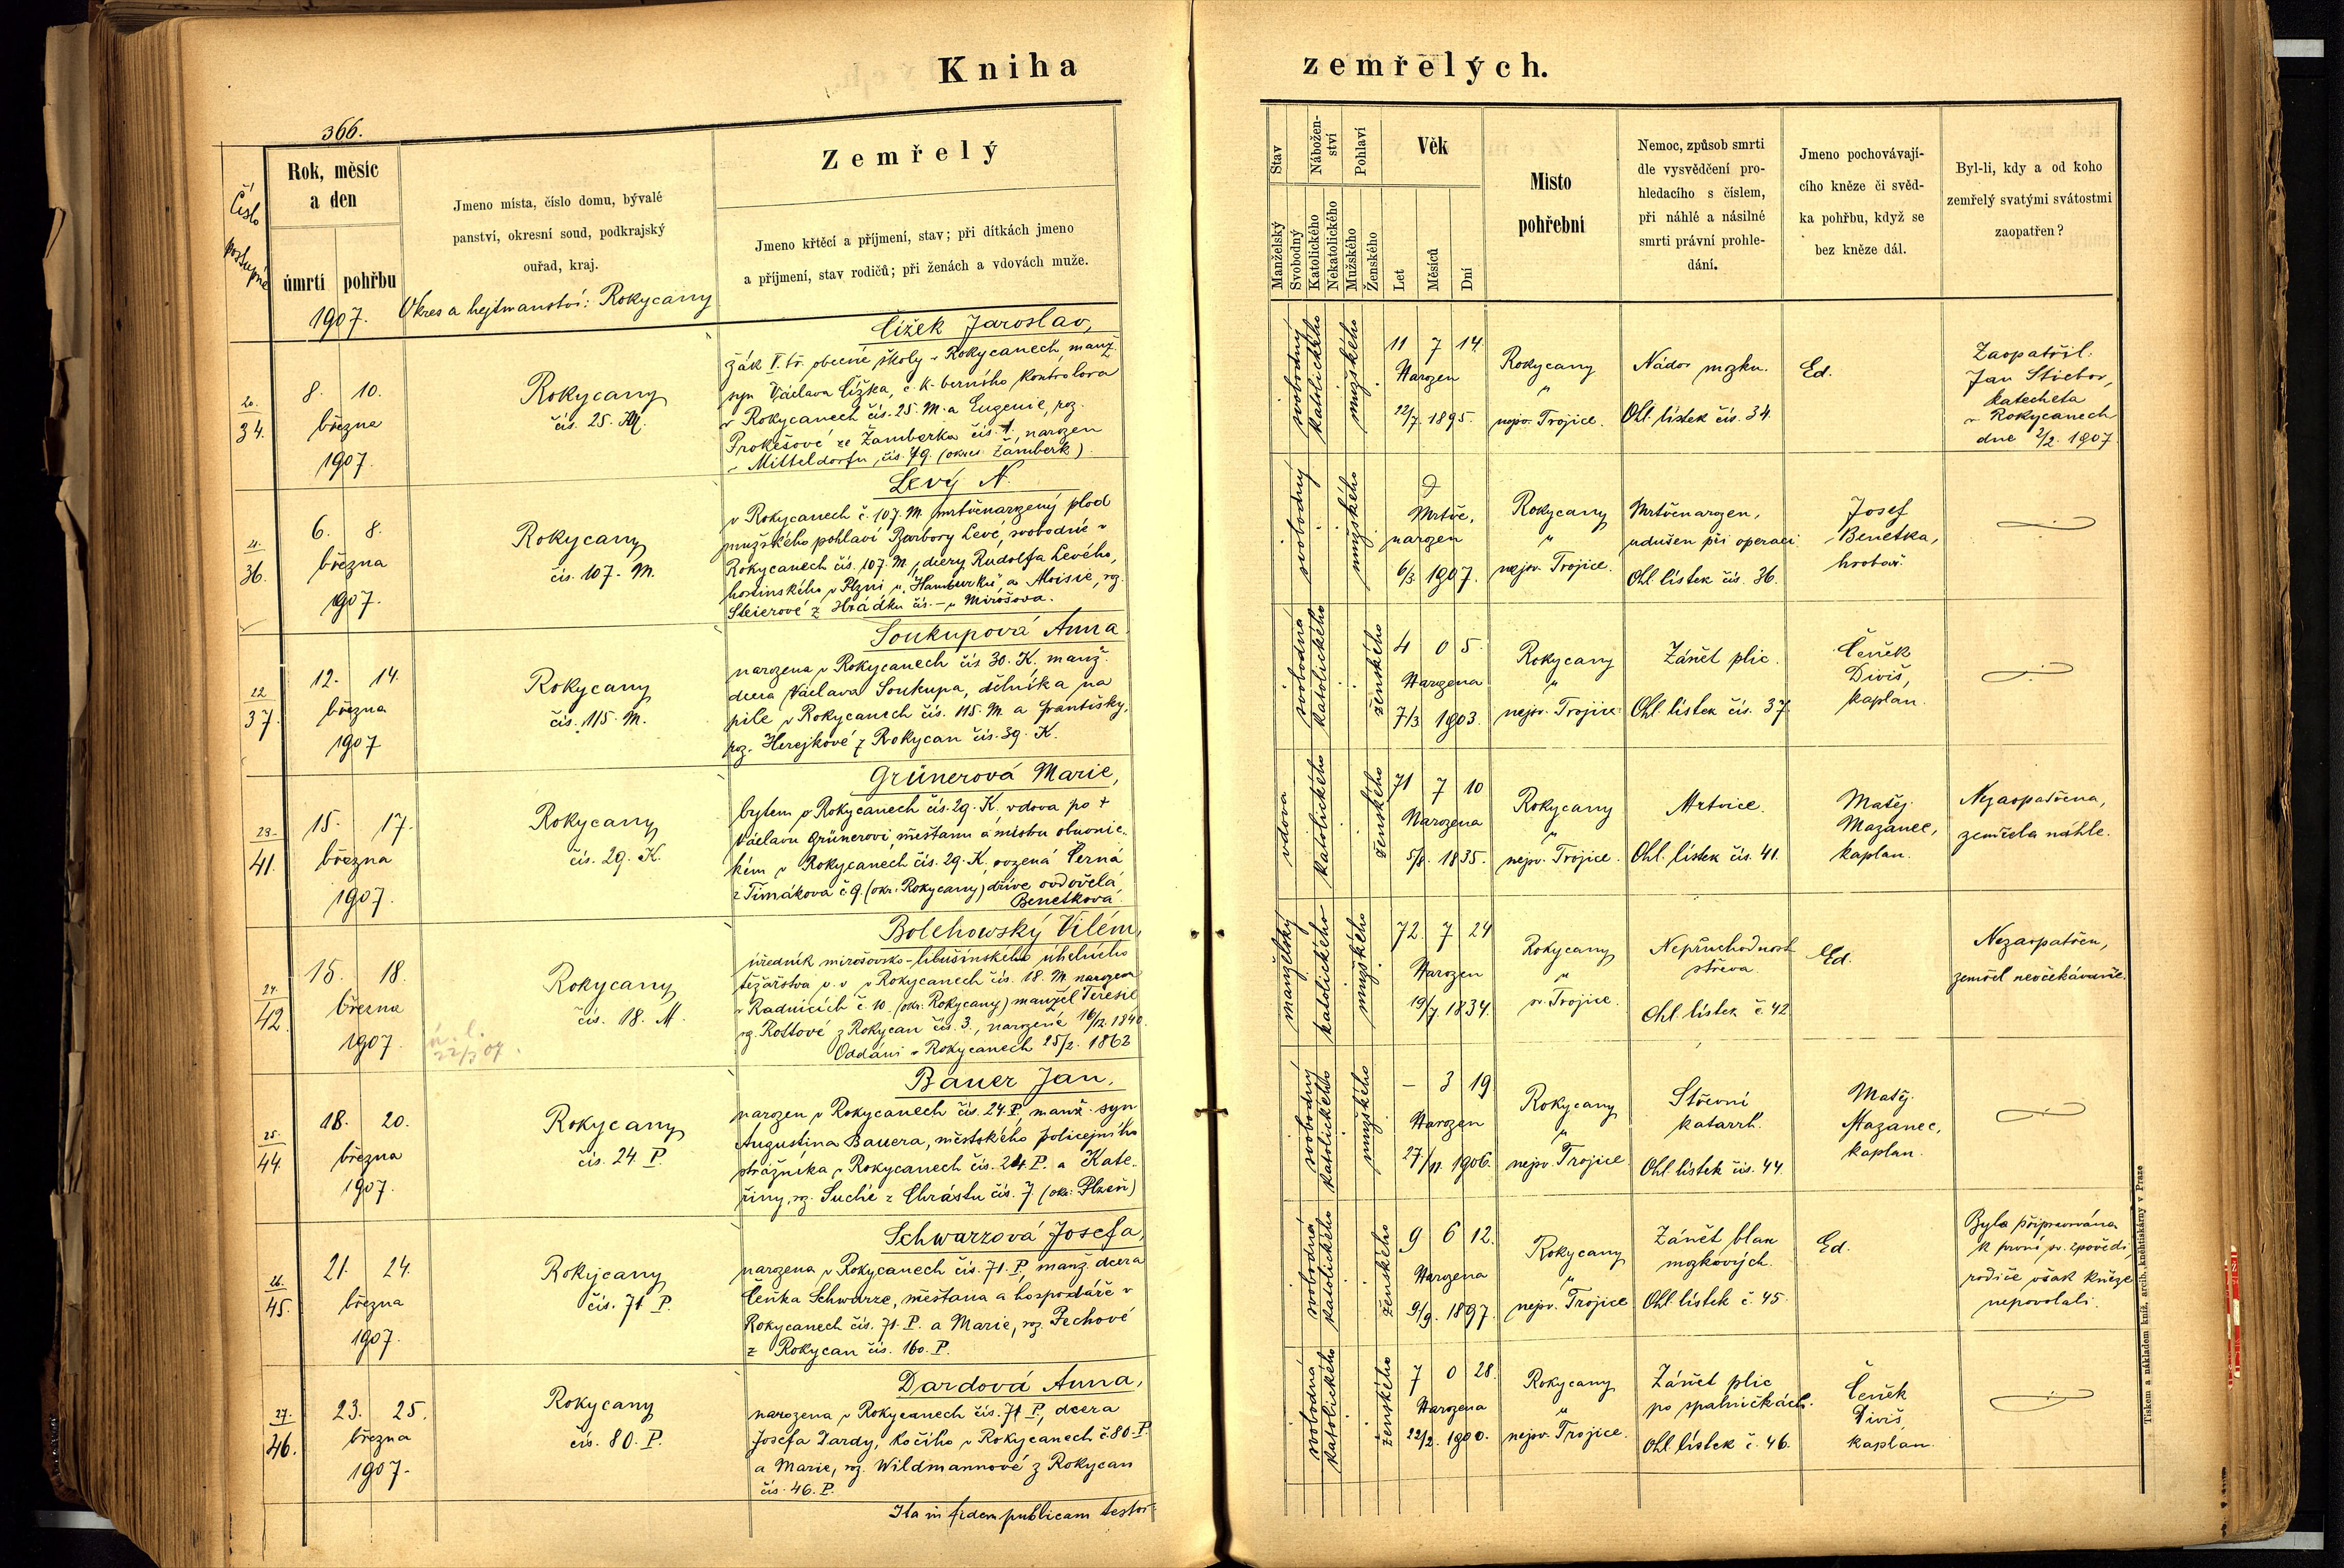 Kniha
zemřelých.
366.
Číslo
postupné
Rok, měsíc
a den
úmrtí
pohřbu
1907.
Jmeno místa, číslo domu, bývalé
panství, okresní soud, podkrajský
ouřad, kraj.
Okres a hejtmanství: Rokycany
Zemřelý
Jmeno křtěcí a příjmení, stav; při dítkách jmeno
a příjmení, stav rodičů; při ženách a vdovách muže.
Stav
Manželský
Svobodný
Nábožen-
ství
Katolického
Nekatolického
Pohlaví
Mužského
Ženského
Věk
Let
Měsíců
Dní
Místo
pohřební
Nemoc, způsob smrti
dle vysvědčení pro-
hledacího s číslem,
při náhlé a násilné
smrti právní prohle-
dání.
Jmeno pochovávají-
cího kněze či svěd-
ka pohřbu, když se
bez kněze dál.
Byl-li, kdy a od koho
zemřelý svatými svátostmi
zaopatřen?
20.
34.
8. 10.
března
1907.
Rokycany
čís. 25. M.
Čížek Jaroslav,
žák V. tř. obecné školy v Rokycanech, manž.
syn Václava Čížka, c. k. berního kontrolora
v Rokycanech čís. 25. M. a Eugenie, roz.
Prokešové ze Žamberka čís. 1., narozen
v Mitteldorfu, čís. 79. (okres Žamberk).
svobodný
katolického
mužského
11 7 14.
Narozen
22/7. 1895.
Rokycany
"
nejsv. Trojice.
Nádor mozku.
Ohl. lístek čís. 34.
Ed.
Zaopatřil:
Jan Stiebor,
katecheta
v Rokycanech
dne 2/2. 1907.
21.
36.
6. 8.
března
1907.
Rokycany
čís. 107. M.
Levý N.
v Rokycanech č. 107. M. mrtvěnarozený plod
mužského pohlaví Barbory Levé, svobodné v
Rokycanech čís. 107. M., dcery Rudolfa Levého,
hostinského v Plzni u „Hamburku“ a Aloisie, roz.
Steierové z Hrádku čís. – u Mirošova.
svobodný
mužského
Mrtvě,
narozen
6/3. 1907.
Rokycany
"
nejsv. Trojice.
Mrtvěnarozen,
udušen při operaci
Ohl. lístek čís. 36.
Josef
Benetka,
hrobař.
22
37.
12. 14.
března
1907
Rokycany
čís. 115. M.
Soukupová Anna
narozena v Rokycanech čís 30. K. manž.
dcera Václava Soukupa, dělníka na
pile v Rokycanech čís. 115. M. a Františky,
roz. Herejkové z Rokycan čís. 39. K.
svobodná
katolického
ženského
4 0 5.
Narozena
7/3 1903.
Rokycany
"
nejsv. Trojice.
Zánět plic.
Ohl. lístek čís. 37.
Čeněk
Diviš,
kaplan.
23.
41.
15. 17.
března
1907.
Rokycany
čís. 29. K.
Grünerová Marie,
bytem v Rokycanech čís. 29. K. vdova po †
Václavu Grünerovi, měšťanu a mistru obuvnic-
kém v Rokycanech čís. 29. K., rozená Černá
z Timákova č. 9. (okr. Rokycany) dříve ovdovělá
Benetková.
vdova
katolického
ženského
71 7 10
Narozena
5/8. 1835.
Rokycany
"
nejsv. Trojice.
Mrtvice
Ohl. lístek čís. 41.
Matěj
Mazanec,
kaplan.
Nezaopatřena,
zemřela náhle.
24.
42.
15. 18.
března
1907.
22/3 07.
Rokycany
čís. 18. M.
Bolehowský Vilém,
úředník mirošovsko-libušínského úhelného
těžařstva v. v. v Rokycanech čís. 18. M. narozen
v Radnicích č. 10. (okr. Rokycany) manžel Teresie
roz. Rottové z Rokycan čís. 3., narozené 16/12. 1840.
Oddáni v Rokycanech 25/2. 1862
manželský
katolického
mužského
72. 7 24
Narozen
19/7. 1834.
Rokycany
"
sv. Trojice.
Neprůchodnost
střeva.
Ohl. lístek č. 42
Ed.
Nezaopatřen,
zemřel neočekávaně.
25.
44.
18. 20.
března
1907.
Rokycany
čís. 24 P.
Bauer Jan,
narozen v Rokycanech čís. 24. P. manž. syn
Augustina Bauera, městského policejního
strážníka v Rokycanech čís. 24. P. a Kate-
řiny, roz. Suché z Chrástu čís. 7. (okr. Plzeň)
svobodný
katolického
mužského
– 3 19
Narozen
27/11. 1906.
Rokycany
"
nejsv. Trojice
Střevní
katarrh.
Ohl. lístek čís. 44.
Matěj
Mazanec,
kaplan.
26.
45.
21. 24.
března
1907.
Rokycany
čís. 71 P.
Schwarzová Josefa,
narozena v Rokycanech čís. 71. P. manž. dcera
Čeňka Schwarze, měšťana a hospodáře v
Rokycanech čís. 71. P. a Marie, roz. Pechové
z Rokycan čís. 160. P.
svobodná
katolického
ženského
9 6 12.
Narozena
9/9. 1897.
Rokycany
"
nejsv. Trojice
Zánět blan
mozkových.
Ohl. lístek č. 45.
Ed.
Byla připravována
k první sv. zpovědi,
rodiče však kněze
nepovolali.
27.
46.
23. 25.
března
1907.
Rokycany
čís. 80. P.
Dardová Anna,
narozena v Rokycanech čís. 71 P., dcera
Josefa Dardy, kočího v Rokycanech č 80. P.
a Marie, roz. Wildmannové z Rokycan
čís. 46. P.
svobodná
katolického
ženského
7 0 28.
Narozena
22/2. 1900.
Rokycany
"
nejsv. Trojice.
Zánět plic
po spalničkách.
Ohl. lístek č. 46.
Čeněk
Diviš,
kaplan.
Ita in fidem publicam testor:
Tiskem a nákladem kníž. arcib. knihtiskárny v Praze